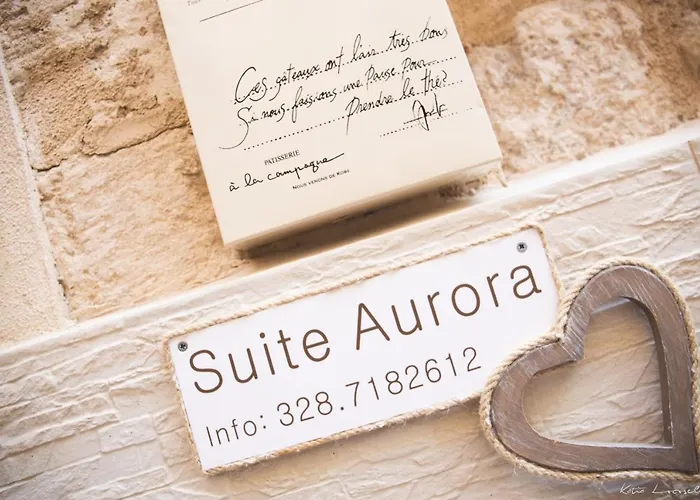 Ces gâteaux ont l'air très bons
Si nous fassions une Pause Pour
Prendre le thé?
PATISSERIE
à la campagne
NOUS VENONS DE KOBE
Suite Aurora
Info: 328.7182612